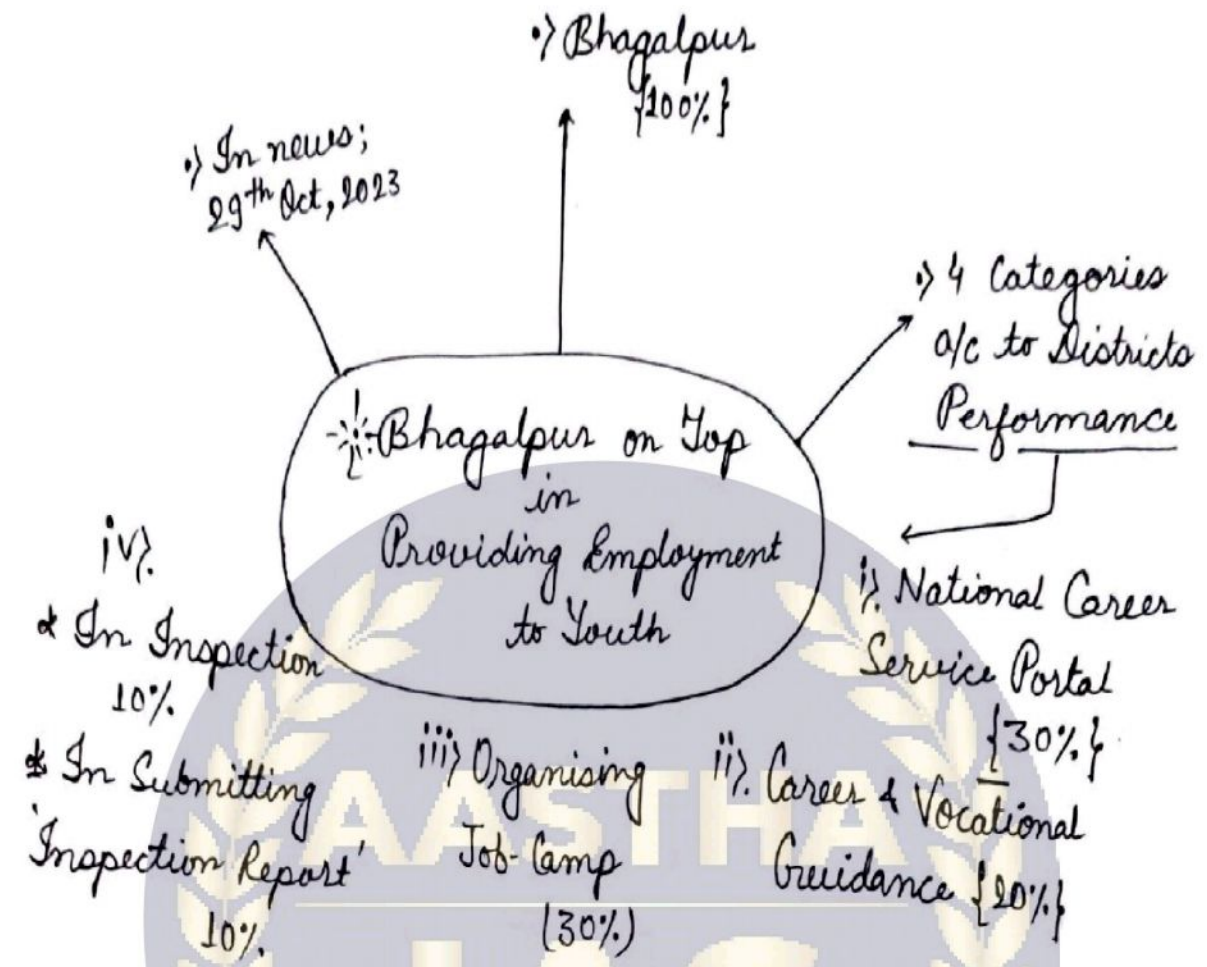 •) Bhagalpur
{100%}
•) In news;
29th Oct, 2023
•) 4 Categories
a/c to Districts
Performance
Bhagalpur on Top
in
Providing Employment
to Youth
i). National Career
Service Portal
{30%}
ii). Career & Vocational
Guidance {20%}
iii) Organising
Job-Camp
(30%)
iv).
* In Inspection
10%.
* In Submitting
'Inspection Report'
10%.
AASTHA
IAS